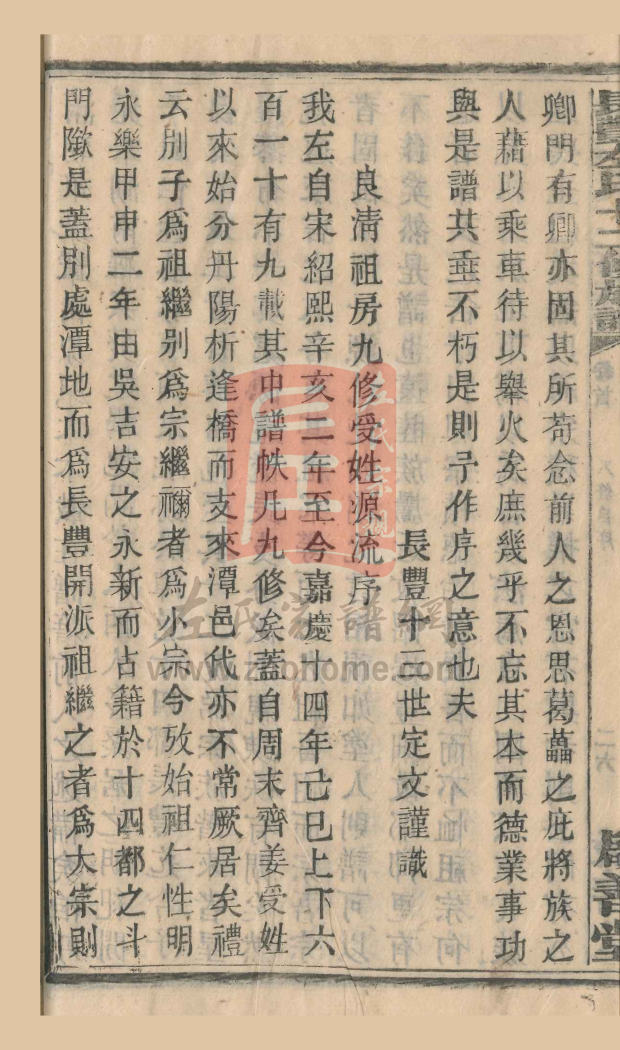 卿門有卿亦固其所苟念前人之恩思葛藟之庇將族之
人藉以乘車待以舉火矣庶幾乎不忘其本而德業事功
與是譜共垂不朽是則予作序之意也夫
長豐十三世定文謹識
良清祖房九修受姓源流序
我左自宋紹熙辛亥二年至今嘉慶十四年己巳上下六
百一十有九載其中譜帙凡九修矣蓋自周末齊姜受姓
以來始分丹陽析逢橋而支來潭邑代亦不常厥居矣禮
云別子爲祖繼別爲宗繼禰者爲小宗今攷始祖仁性明
永樂甲申二年由吳吉安之永新而占籍於十四都之斗
門㵐是蓋別處潭地而爲長豐開派祖繼之者爲大宗則
左氏家譜網
www.zuohome.com